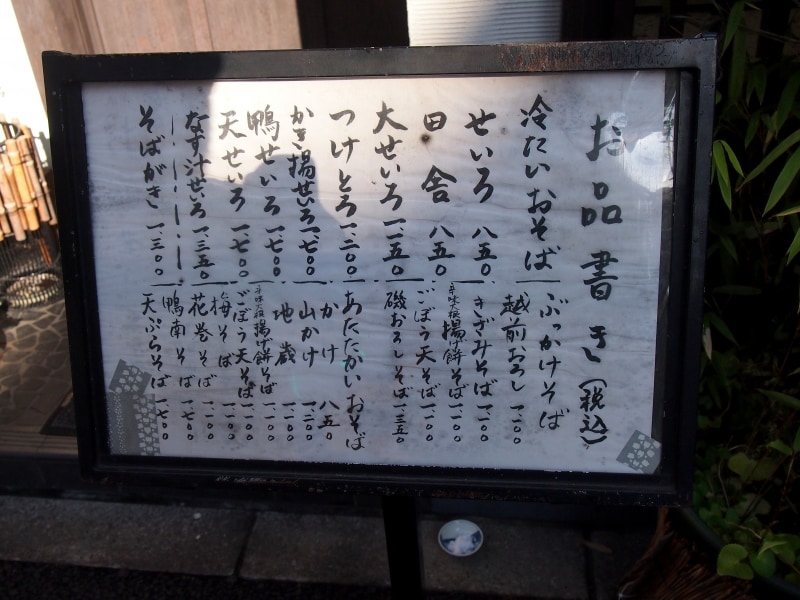 お品書き(税込)
冷たいおそば
せいろ 八五〇
田舎 八五〇
大せいろ 一、一五〇
つけとろ 一、二〇〇
かき揚せいろ 一、七〇〇
鴨せいろ 一、七〇〇
天せいろ 一、七〇〇
なす汁せいろ 一、三五〇
そばがき 一、三〇〇
ぶっかけそば
越前おろし 一、一〇〇
きざみそば 一、一〇〇
辛味大根揚げ餅そば 一、一〇〇
ごぼう天そば 一、一〇〇
磯おろしそば 一、三五〇
あたたかいおそば
かけ 八五〇
山かけ 一、二〇〇
地鶏 一、一〇〇
辛味大根揚げ餅そば 一、一〇〇
ごぼう天そば 一、一〇〇
梅そば 一、一〇〇
花巻そば 一、一〇〇
鴨南そば 一、七〇〇
天ぷらそば 一、七〇〇